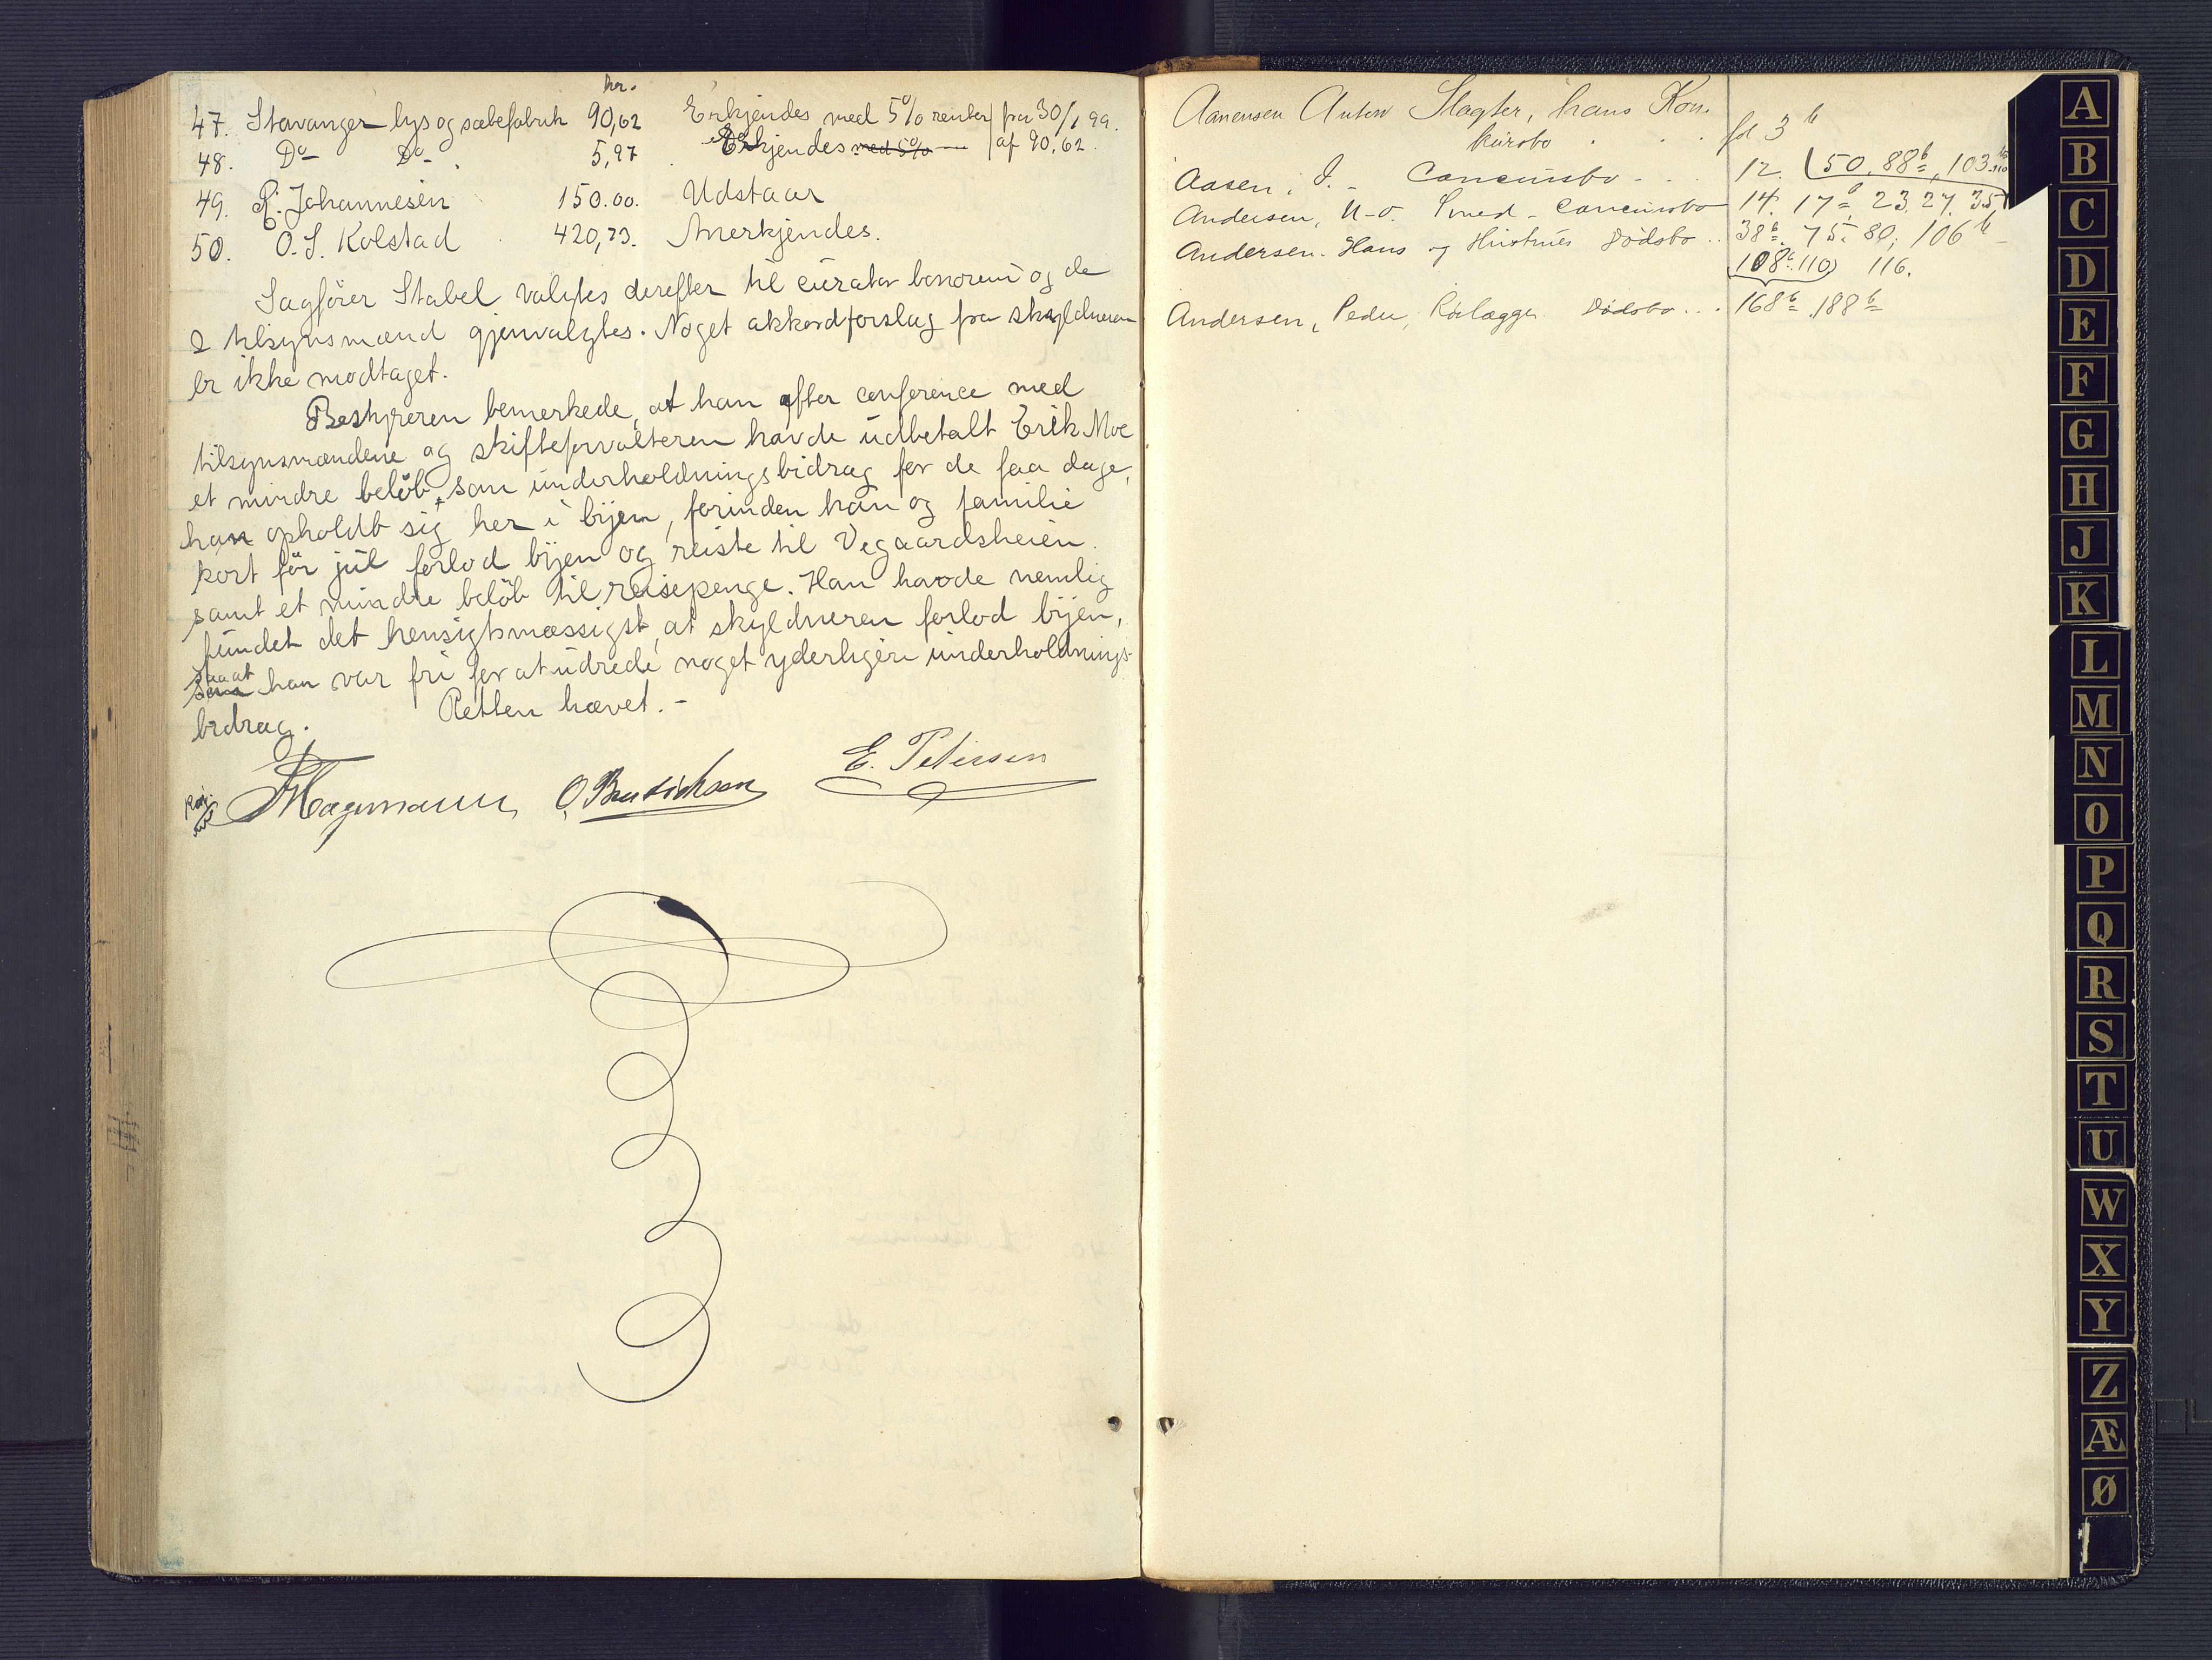 kr.
47. Stavanger lys og sæbefabrik 90,62 Erkjendes med 5% renter fra 30/1 99.
48. Do Do 5,97 Erkjendes med 5% af 90,62.
49. R. Johannesen 150.00. Udstaar
50. O. S. Kolstad 420,73. Anerkjendes.
Sagfører Stabel valgtes derefter til curator bonorum og de
2 tilsynsmænd gjenvalgtes. Noget akkordforslag fra skyldneren
er ikke modtaget.
Bestyreren bemerkede, at han efter conference med
tilsynsmændene og skifteforvalteren havde udbetalt Erik Moe
et mindre beløb som underholdningsbidrag for de faa dage,
han opholdt sig her i byen, forinden han og familie
kort før jul forlod byen og reiste til Vegaardsheien
samt et mindre beløb til reisepenge. Han havde nemlig
fundet det hensigtsmæssigst, at skyldneren forlod byen,
saa at
som han var fri for at udrede noget yderligere underholdnings-
bidrag. Retten hævet. -
Hagemann O. Bendichsen E. Petersen
Aanensen Anton Slagter, hans Kon-
kursbo . . fol 3 b
Aasen, J. - Concursbo - . . 12. (50. 88b, 103.
Andersen, N. O. Smed - Concursbo 14. 17b 23. 27. 35)
Andersen. Hans og Hustrues Dødsbo .. 38b. 75. 80, 106b
(108b. 110) 116.
Andersen, Peder, Rørlægger Dødsbo . . . 168b. 188b
A
B
C
D
E
F
G
H
J
K
L
M
N
O
P
Q
R
S
T
U
W
X
Y
Z
Æ
Ø